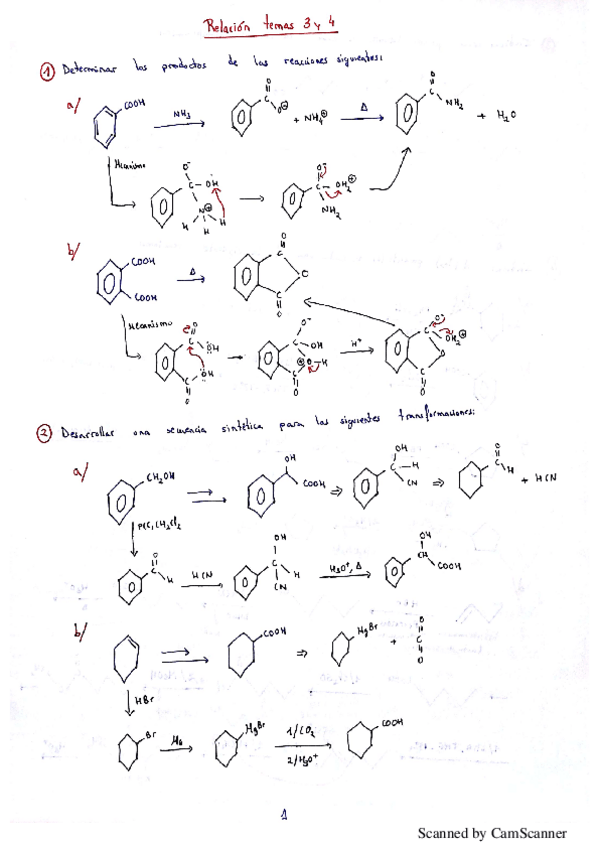 Relación temas 3 y 4
1 Determinar los productos de las reacciones siguientes:
a/
COOH
NH3
O
C
O⊖
+ NH4⊕
Δ
O
C
NH2
+ H2O
Mecanismo
O-
C - OH
N⊕
H H H
O-
C - OH2⊕
NH2
b/
COOH
COOH
Δ
O
C
O
C
O
Mecanismo
O
C
OH
C
OH
O
O-
C
OH
⊕O-H
C
O
H+
O-
C
OH2⊕
O
C
O
2 Desarrollar una secuencia sintética para las siguientes transformaciones:
a/
CH2OH
OH
COOH
⇒
OH
C - H
CN
⇒
O
C
H
+ HCN
PCC, CH2Cl2
O
C
H
HCN
OH
C
H
CN
H3O+, Δ
OH
CH
COOH
b/
COOH
⇒
MgBr
+
O
C
O
HBr
Br
Mg
MgBr
1/ CO2
2/ H3O+
COOH
1
Scanned by CamScanner